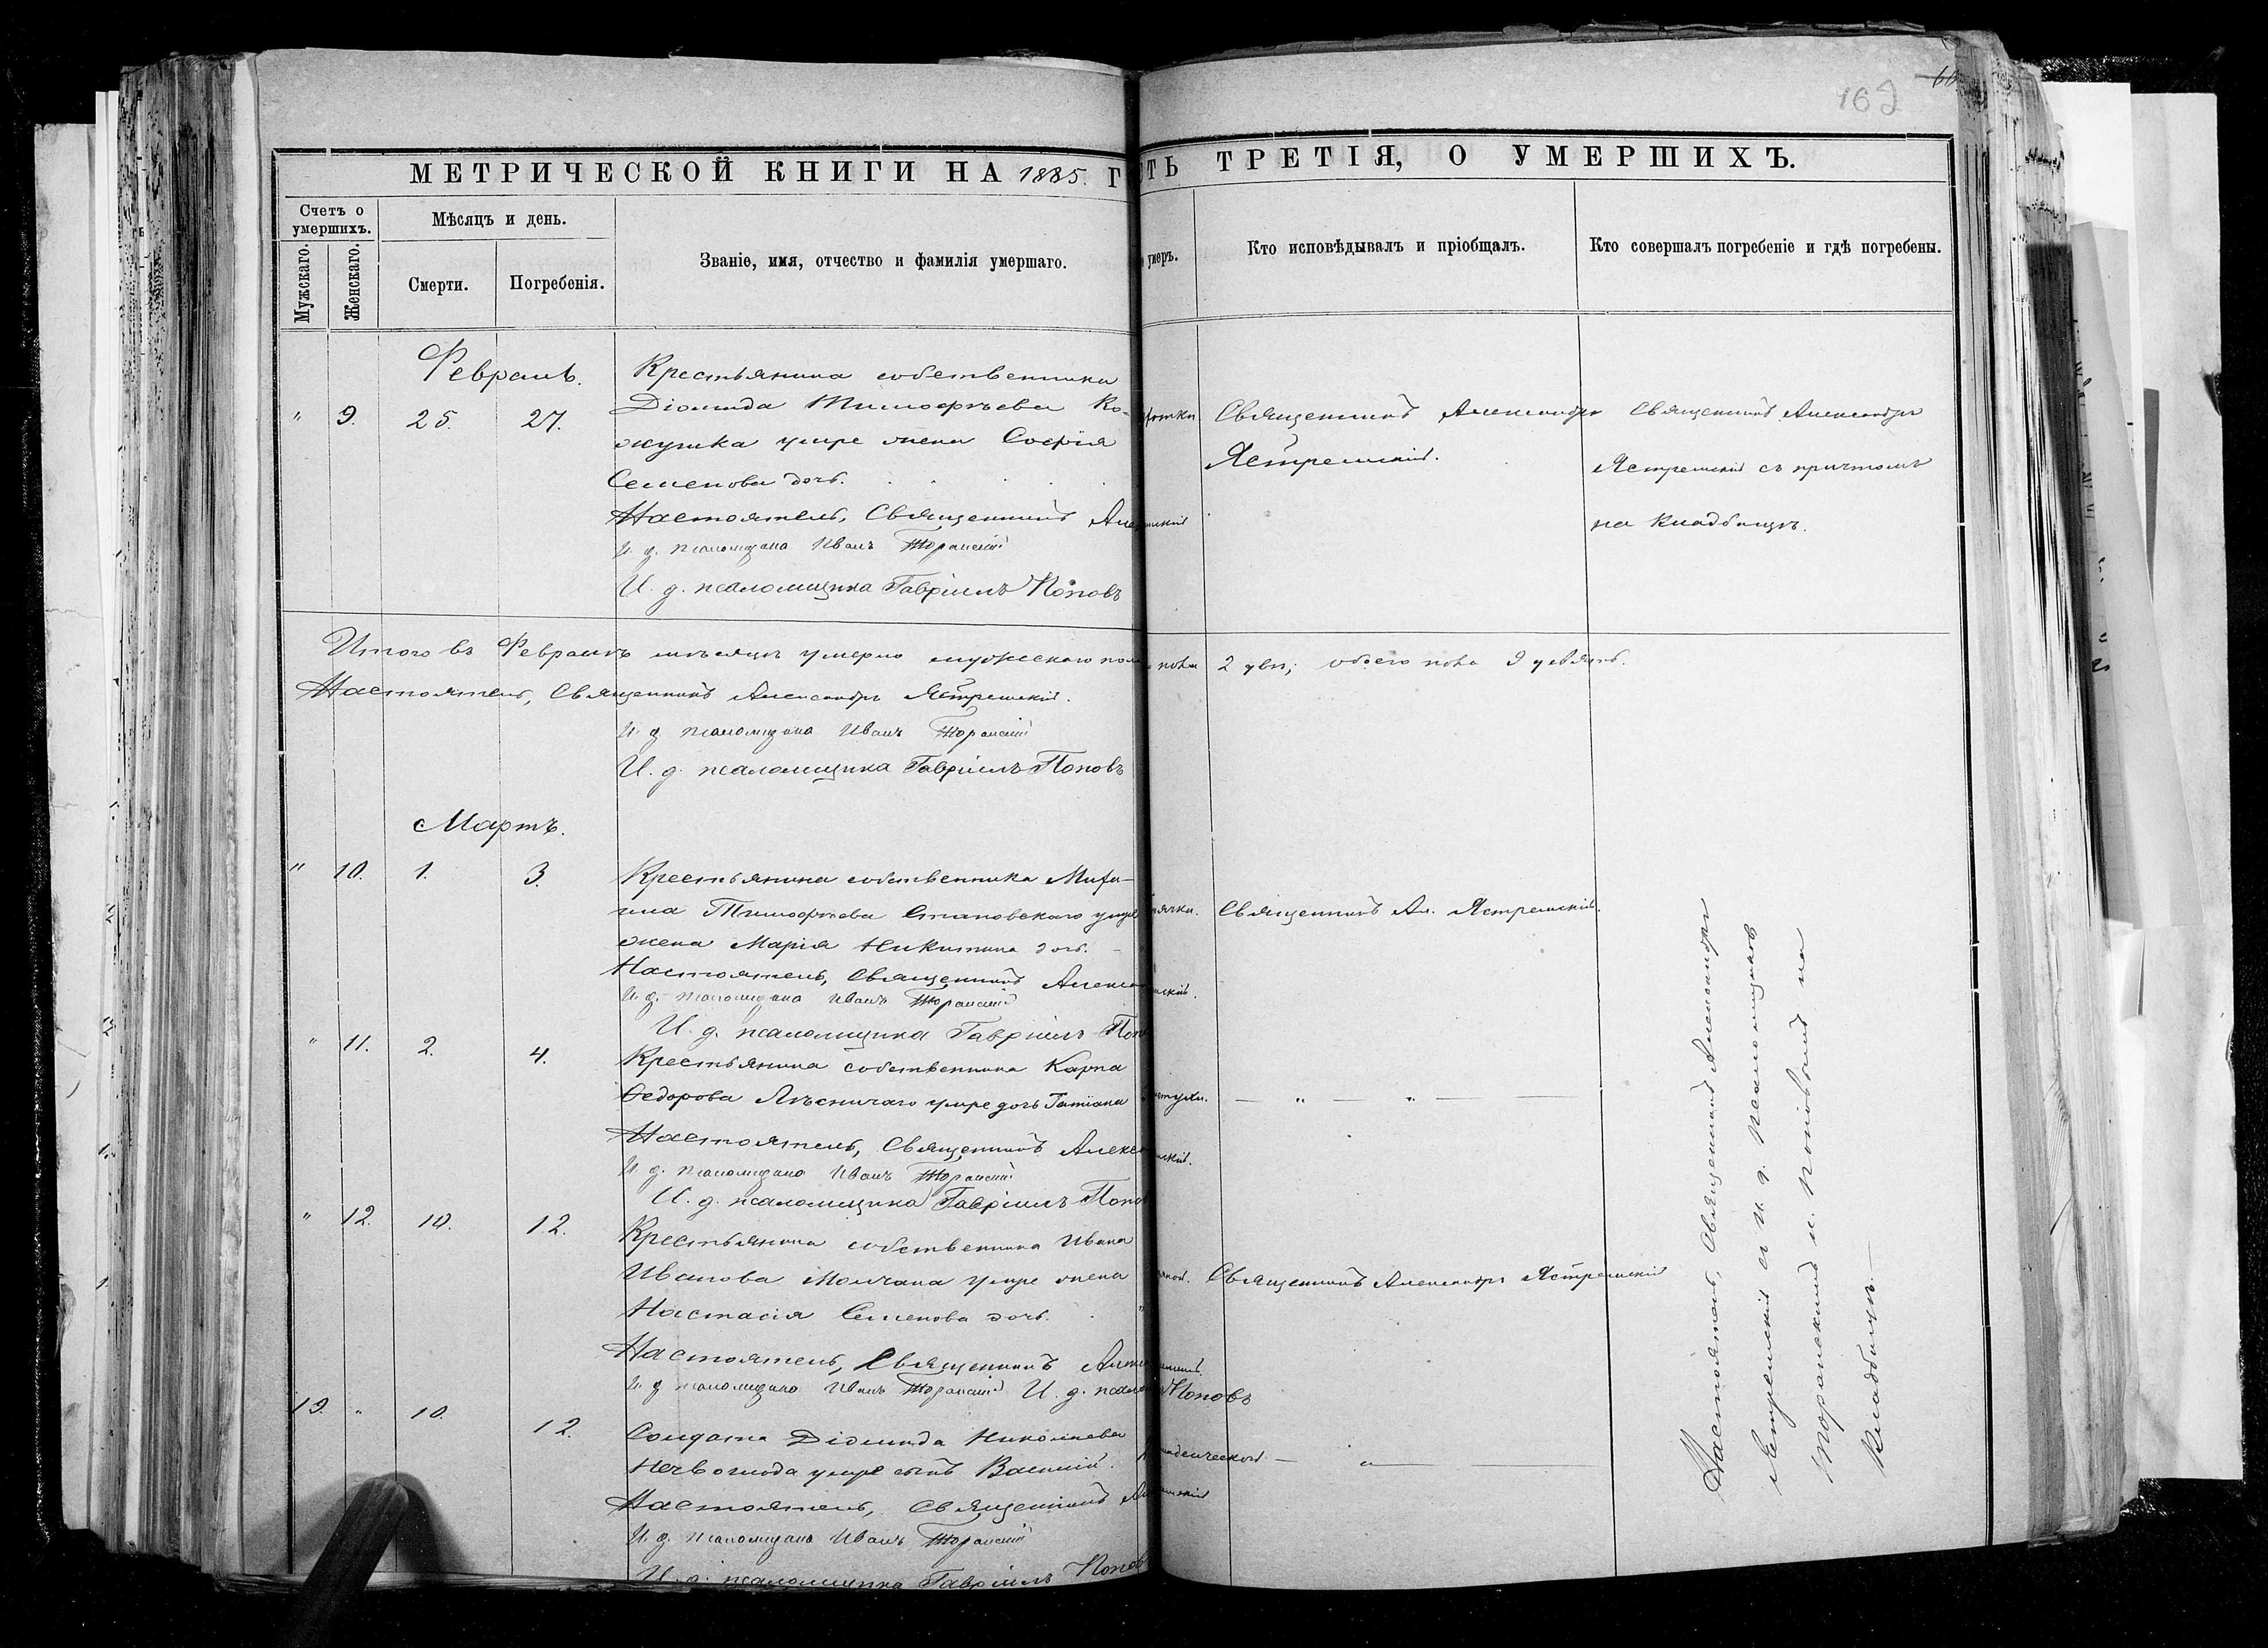 162
МЕТРИЧЕСКОЙ КНИГИ НА 1885. Г
СТЬ ТРЕТІЯ, О УМЕРШИХЪ.
Счетъ о умершихъ.
Мужскаго.
Женскаго.
Мѣсяцъ и день.
Смерти.
Погребенія.
Званіе, имя, отчество и фамилія умершаго.
умеръ.
Кто исповѣдывалъ и пріобщалъ.
Кто совершалъ погребеніе и гдѣ погребены.
Февраль.
" 9. 25. 27.
Крестьянина собственника
Діомида Тимофѣева Ко-
жушка умре жена Софія
Семенова дочь.
Настоятель, Священникъ Але
И. д. псаломщика Иванъ Торанскій
И. д. псаломщика Гавріилъ Поповъ
Священникъ Александръ
Ястремскій.
Священникъ Александръ
Ястремскій съ причтомъ
на кладбищѣ.
Итого въ Февралѣ мѣсяцѣ умерло мужескаго пола
пола 2 два; обоего пола 9 девять.
Настоятель, Священникъ Александръ Ястремскій.
И. д. псаломщика Иванъ Торанскій
И. д. псаломщика Гавріилъ Поповъ
Мартъ.
" 10. 1. 3.
Крестьянина собственника Миха-
ила Тимофѣева Становскаго умре
жена Марія Никитина дочь.
Настоятель, Священникъ Алекса
И. д. псаломщика Иванъ Торанскій
И. д. псаломщика Гавріилъ Поп
Священникъ Ал. Ястремскій.
" 11. 2. 4.
Крестьянина собственника Карпа
Федорова Лѣсничаго умре дочь Татіана
Настоятель, Священникъ Алекса
И. д. псаломщика Иванъ Торанскій
И. д. псаломщика Гавріилъ Попо
— " — " —
" 12. 10. 12.
Крестьянина собственника Ивана
Иванова Молчана умре жена
Настасія Семенова дочь.
Настоятель, Священникъ Алек
И. д. псаломщика Иванъ Торанскій И. д. псало
Поповъ
Священникъ Александръ Ястремскій
19. " 10. 12.
Солдата Діомида Николаева
умре сынъ Василій.
Настоятель, Священникъ Ал
И. д. псаломщика Иванъ Торанскій
И. д. псаломщика Гавріилъ Попов
младенческой — " —
Настоятель, Священникъ Александръ
Ястремскій съ И. д. псаломщиковъ
Торанскимъ и Поповымъ на
кладбищѣ.